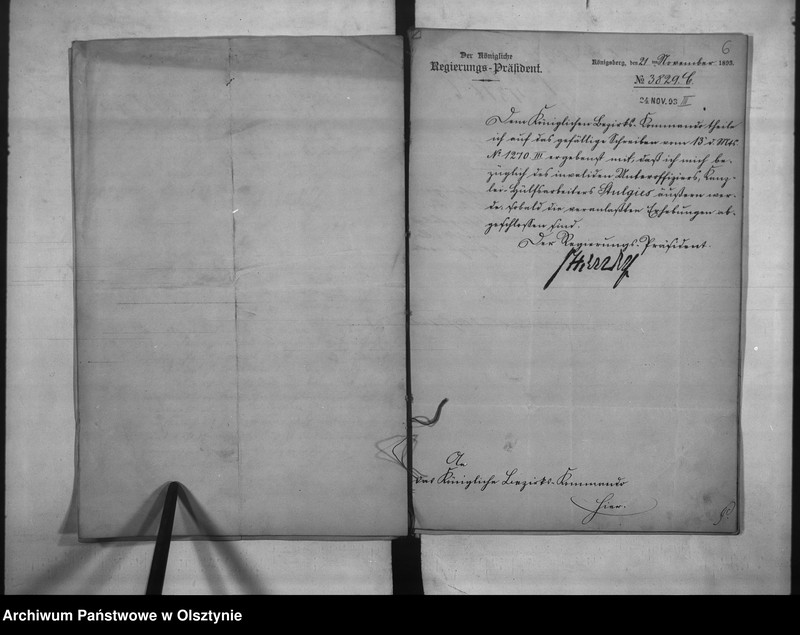 6
Der Königliche
Regierungs-Präsident.
Königsberg, den 21 ten November 1893.
No 3829.
24. NOV. 93 II
Dem Königlichen Bezirks-Kommando theile
ich auf das gefällige Schreiben vom 18. d. Mts
No 1270 III ergebenst mit, daß ich mich be-
züglich des invaliden Unteroffiziers, Kanz-
lei-Hülfsarbeiters Stulgies äußern wer-
de, sobald die veranlaßten Erhebungen ab-
geschlossen sind.
Der Regierungs-Präsident.
An
das Königliche Bezirks-Kommando
hier.
Archiwum Państwowe w Olsztynie